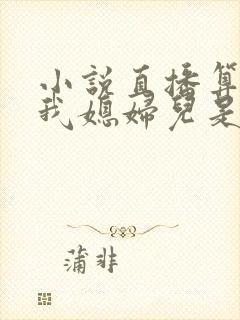 小說直播算
我媳婦兒是
蒲非